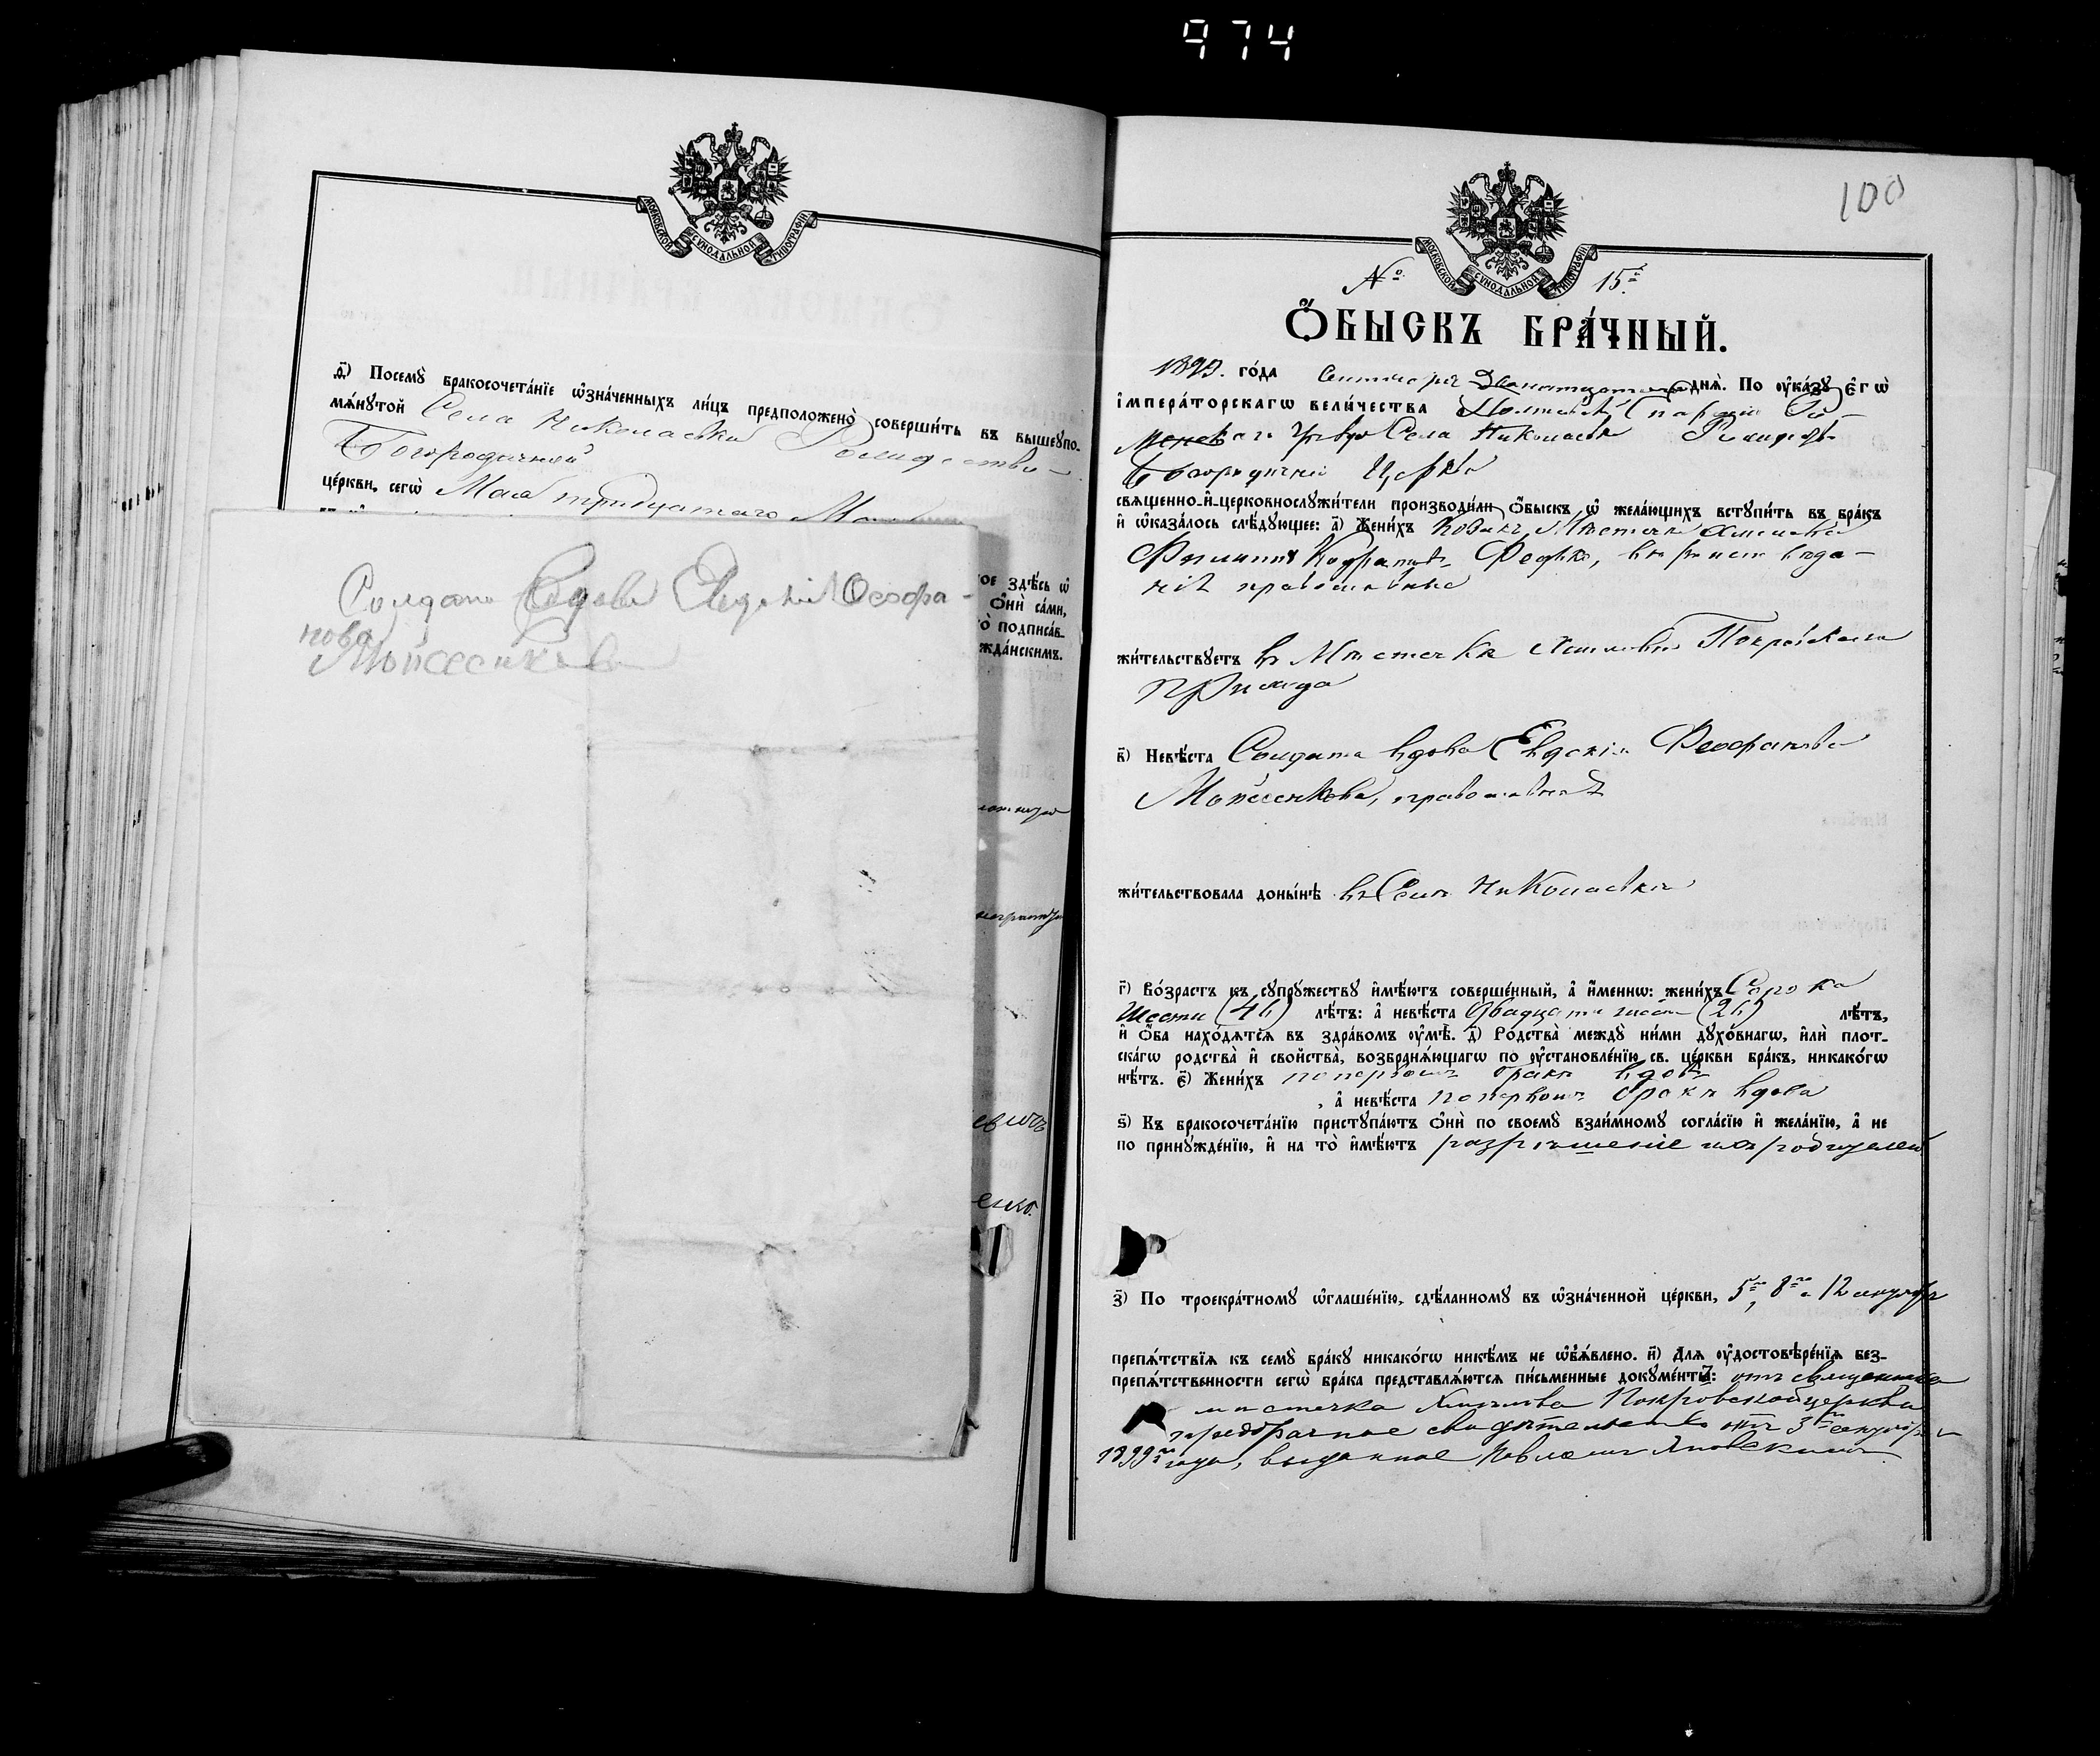 974
МОСКОВСКОЙ СѴНОДАЛЬНОЙ ТИПОГРАФІИ
ѳ҃) Посемꙋ̀ бракосочета́нїе ѡ҆зна́ченныхъ ли́цъ предположено̀ соверши́ть въ вышеꙋпо-
мѧ́нꙋтой Села Николаевки Рождество-
Богородичной
це́ркви, сегѡ̀ Мая тридцатаго
ое здѣ́сь ѡ҆
Ѻ҆нѝ са́ми,
о̀ подписа́в-
жда́нскимъ.
Солдата Вдова Евдокія Ѳеофа-
нова
Мойсеенкова
евичъ
енко.
100
МОСКОВСКОЙ СѴНОДАЛЬНОЙ ТИПОГРАФІИ
№ 15й
Ѻ҆БЫСКЪ БРА́ЧНЫЙ.
1899. го́да Сентября Двенадцатого днѧ̀. По ᲂу҆ка́зꙋ Є҆гѡ̀
і҆мпера́торскагѡ вели́чества Полтавской Епархіи Ро-
менскаго Уезда Села Николаевки Рождество-
Богородичной Церкви
свѧще́нно-и҆-церковнослꙋжи́тели производи́ли Ѻ҆́быскъ ѡ҆ жела́ющихъ встꙋпи́ть въ бра́къ
и҆ ѡ҆каза́лось слѣ́дꙋющее: а҃) Жени́хъ Козакъ Местечка Хмелова
Филиппъ Кодратовъ Федько, вероиспoведа-
нія православнаго
жи́тельствꙋетъ въ Местечке Хмелове Покровского
прихода
в҃) Невѣ́ста Солдата вдова Евдокія Феофанова
Мойсеенкова, православная
жи́тельствовала доны́нѣ въ Селе Николаевке
г҃) Во́зрастъ къ сꙋпрꙋ́жествꙋ и҆мѣ́ютъ соверше́нный, а҆ и҆́меннѡ: жени́хъ Сорока
Шести (46) лѣ́тъ: а҆ невѣ́ста двадцати шести (26) лѣ́тъ,
и҆ Ѻ҆́ба нахо́дѧтсѧ въ здра́вомъ ᲂу҆мѣ̀. д҃) Родства̀ междꙋ̀ ни́ми дꙋхо́внагѡ, и҆лѝ плот-
ска́гѡ родства̀ и҆ свойства̀, возбранѧ́ющагѡ по ᲂу҆становле́нїю св. це́ркви бра́къ, никако́гѡ
нѣ́тъ. є҃) Жени́хъ по первомъ браке вдовъ
, а҆ невѣ́ста по первомъ браке вдова
ѕ҃) Къ бракосочета́нїю пристꙋпа́ютъ Ѻ҆нѝ по своемꙋ̀ взаи́мномꙋ согла́сїю и҆ жела́нїю, а҆ не
по принꙋжде́нїю, и҆ на то̀ и҆мѣ́ютъ разрешеніе ихъ родителей
з҃) По троекра́тномꙋ ѡ҆глаше́нїю, сдѣ́ланномꙋ въ ѡ҆зна́ченной це́ркви, 5го, 8го и 12 сентября
препѧ́тствїѧ къ семꙋ̀ бра́кꙋ никако́гѡ никѣ́мъ не ѡ҆б̾ѧ́влено. и҃) Длѧ̀ ᲂу҆достовѣре́нїѧ без-
препѧ́тственности сегѡ̀ бра́ка представлѧ́ютсѧ пи́сьменные докꙋме́нты: отъ священника
местечка Хмелова Покровской церкви
предбрачное свидетельство отъ 3го сентября
1899го года, выданное Павломъ Яновскимъ